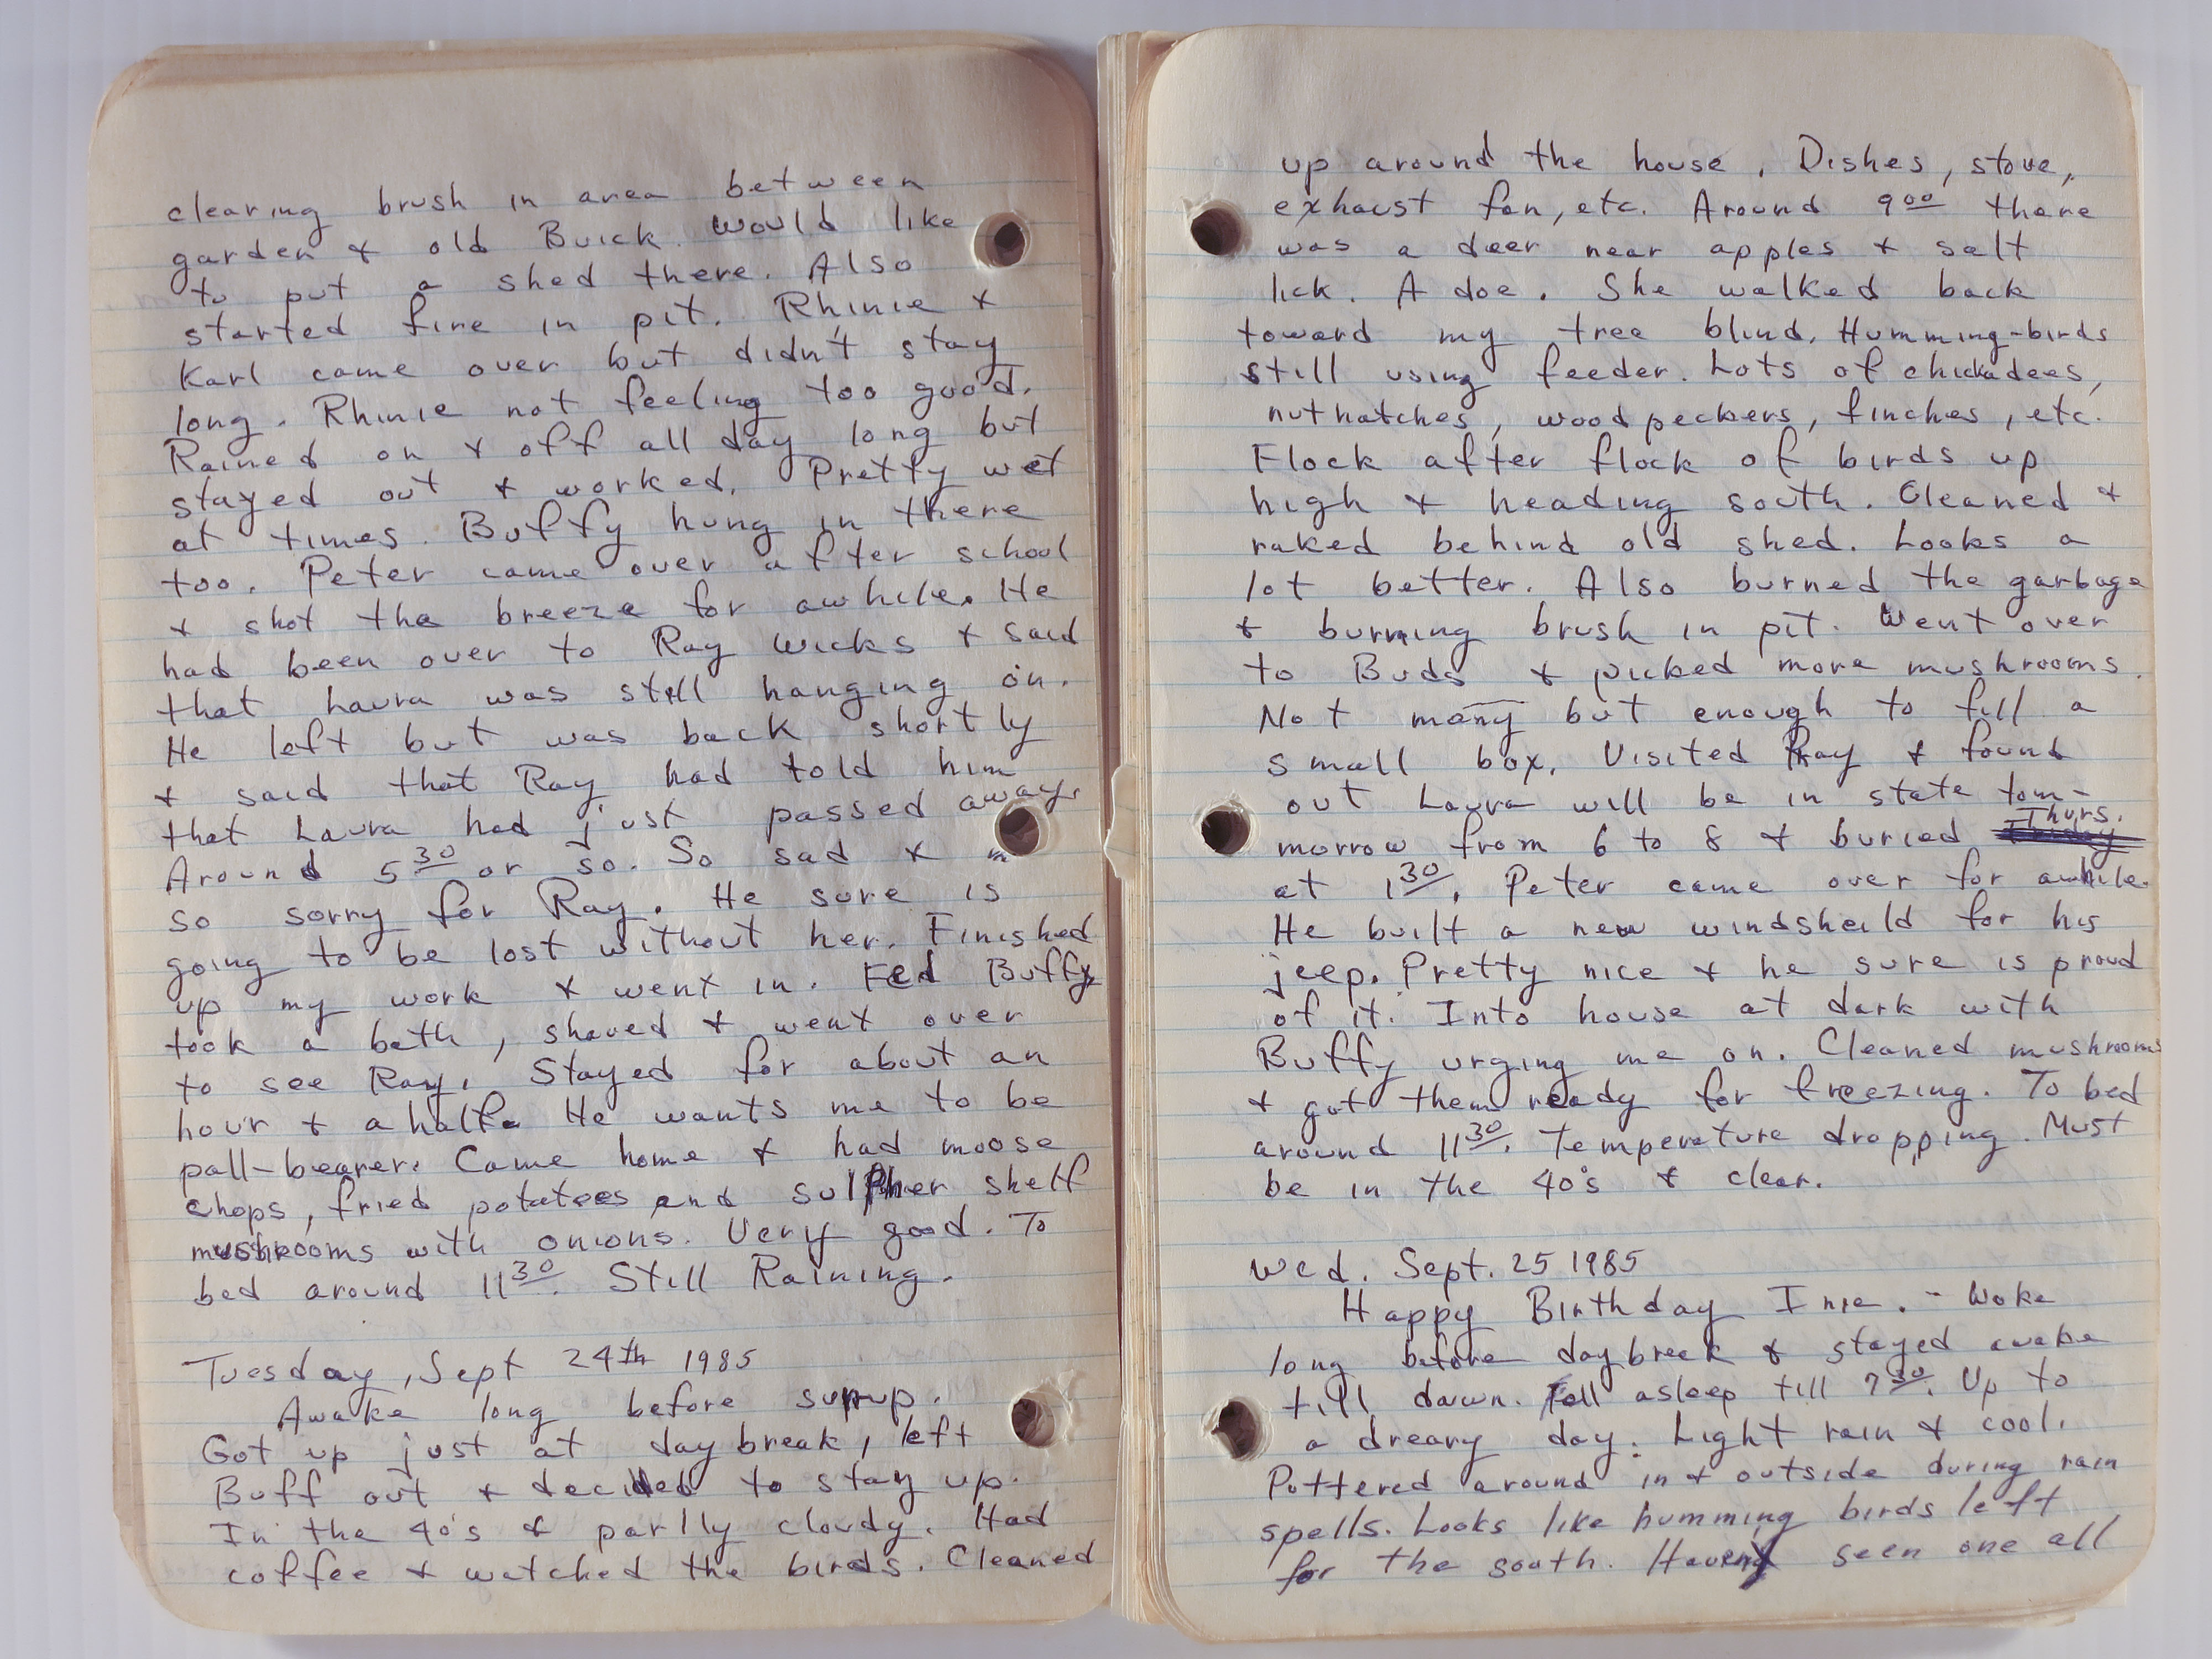 clearing brush in area between
garden & old Buick. Would like
to put a shed there. Also
started fire in pit. Rhinie &
Karl came over but didn't stay
long. Rhinie not feeling too good.
Rained on & off all day long but
stayed out & worked. Pretty wet
at times. Buffy hung in there
too. Peter came over after school
& shot the breeze for awhile. He
had been over to Ray Wicks & said
that Laura was still hanging on.
He left but was back shortly
& said that Ray had told him
that Laura had just passed away.
Around 5 30 or so. So sad &
so sorry for Ray. He sure is
going to be lost without her. Finished
up my work & went in. Fed Buffy
took a bath, shaved & went over
to see Ray. Stayed for about an
hour & a half. He wants me to be
pall-bearer. Came home & had moose
chops, fried potatoes and sulpher shelf
mushrooms with onions. Very good. To
bed around 11 30. Still Raining.
Tuesday, Sept 24th 1985
Awake long before sunup.
Got up just at daybreak, left
Buff out & decided to stay up.
In the 40's & partly cloudy. Had
coffee & watched the birds. Cleaned
up around the house. Dishes, stove,
exhaust fan, etc. Around 9 00 there
was a deer near apples & salt
lick. A doe. She walked back
toward my tree blind. Humming-birds
still using feeder. Lots of chickadees,
nuthatches, woodpeckers, finches, etc.
Flock after flock of birds up
high & heading south. Cleaned &
raked behind old shed. Looks a
lot better. Also burned the garbage
& burning brush in pit. Went over
to Buds & picked more mushrooms.
Not many but enough to fill a
small box. Visited Ray & found
out Laura will be in state tom-
morrow from 6 to 8 & buried Thurs.
at 1 30. Peter came over for awhile.
He built a new windsheild for his
jeep. Pretty nice & he sure is proud
of it. Into house at dark with
Buffy urging me on. Cleaned mushrooms
& got them ready for freezing. To bed
around 11 30. Temperature dropping. Must
be in the 40's & clear.
Wed. Sept. 25 1985
Happy Birthday Inie. - Woke
long before daybreak & stayed awake
till dawn. Fell asleep till 7 30. Up to
a dreary day. Light rain & cool.
Puttered around in & outside during rain
spells. Looks like humming birds left
for the south. Haven't seen one all